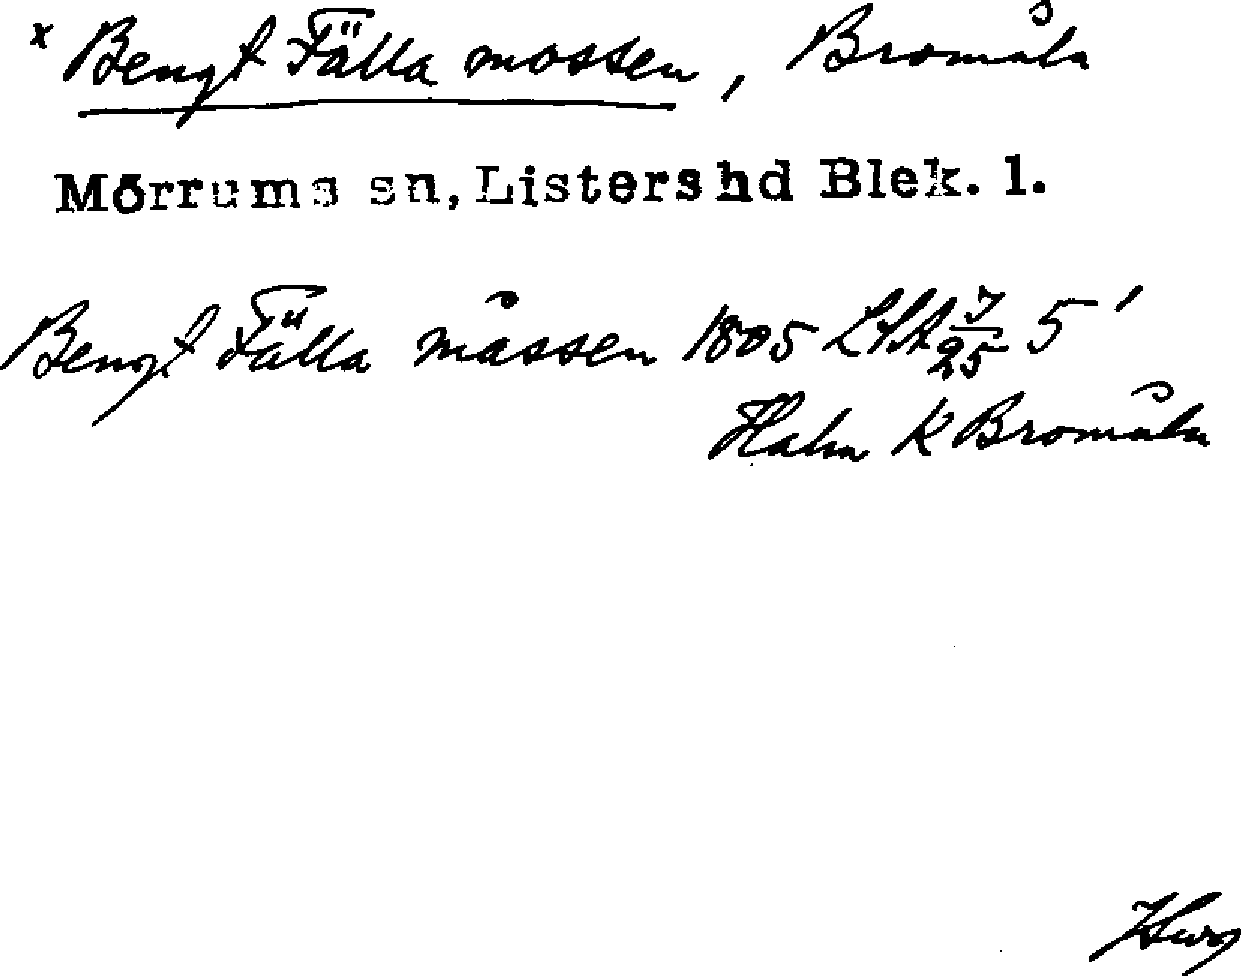 x Bengt Fälla mossen, Bromåla
Mörrums sn, Listers hd Blek. l.
Bengt Fälla måssen 1805 LStA 7/25 5'
Hahn K Bromåla